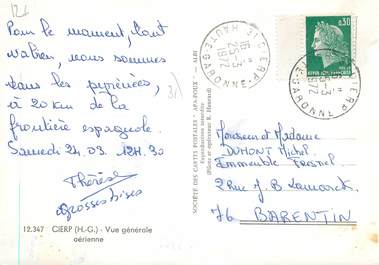 Pour le moment, tout
va bien, nous sommes
dans les pyrénées,
à 20 km de la
frontière espagnole.
Samedi 24.03. 12H.30
Thérèse
Grosses bises
12.347 CIERP (H.-G.) - Vue générale
aérienne
SOCIÉTÉ DES CARTES POSTALES "APA-POUX" - ALBI
Reproduction interdite
CIERP
HAUTE-GARONNE
16 H
25-3
1972
0,30
REPUBLIQUE FRANCAISE
CIERP
HAUTE-GARONNE
25-3
1972
Monsieur et Madame
DUMONT Michel
Immeuble Fresnel
2 Rue J. B Lamarck
76 BARENTIN